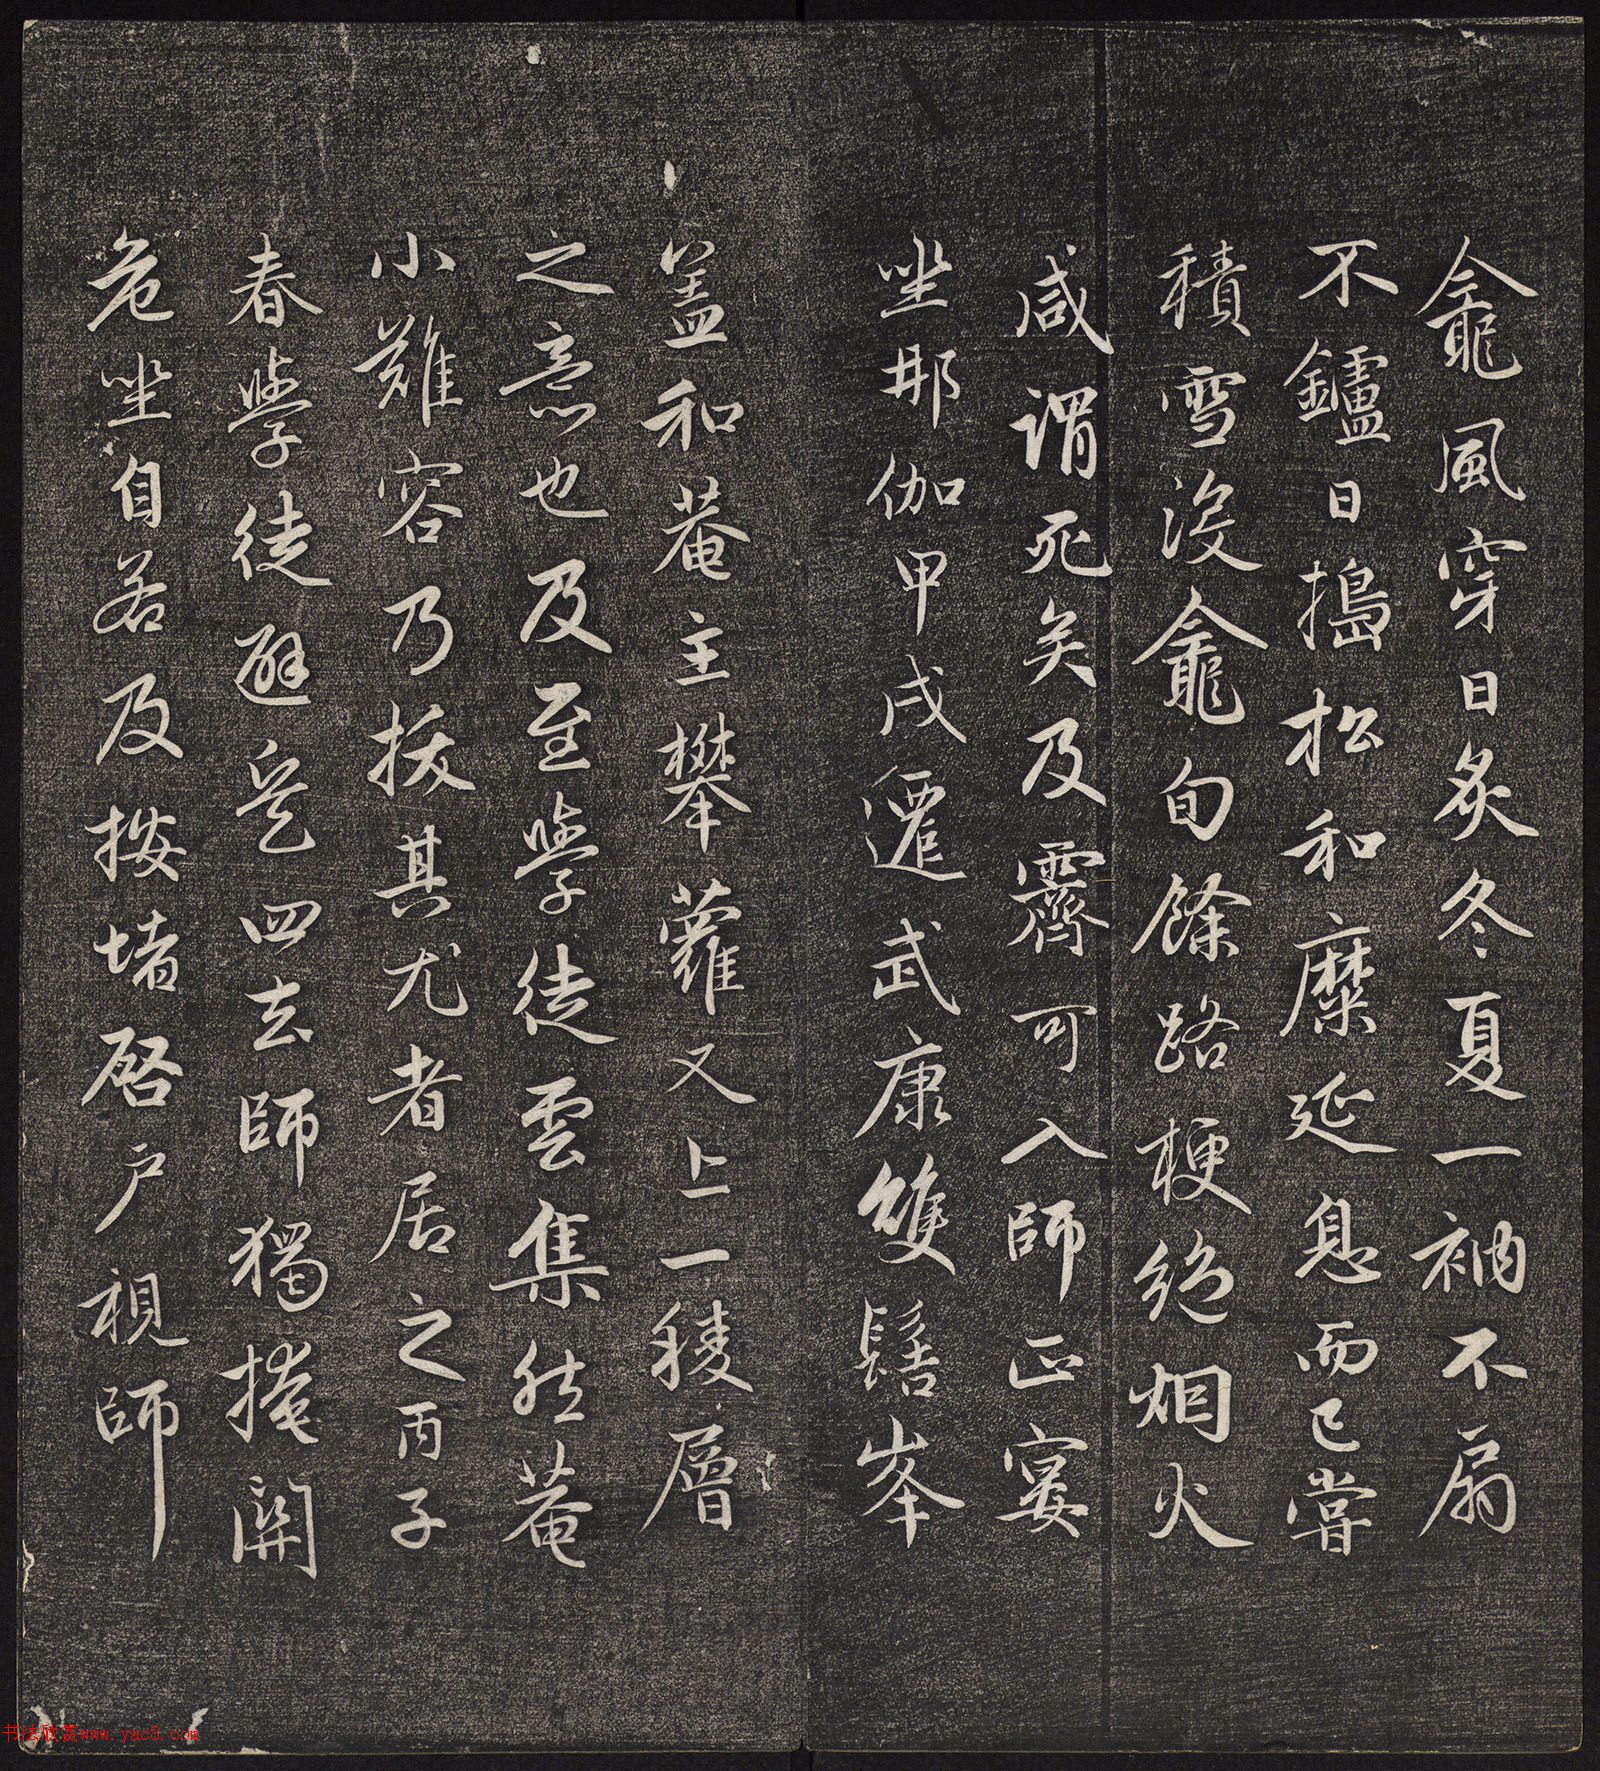 龕風穿日炙冬夏一衲不扇
不鑪日搗松和糜延息而已嘗
積雪沒龕旬餘路梗絕烟火
咸謂死矣及霽可入師正宴
坐那伽甲戌遷武康雙髻峯
盖和菴主攀蘿又上一稜層
之意也及至學徒雲集然菴
小難容乃拔其尤者居之丙子
春學徒避兵四去師獨掩關
危坐自若及按堵啓户視師
书法欣赏www.yac8.com